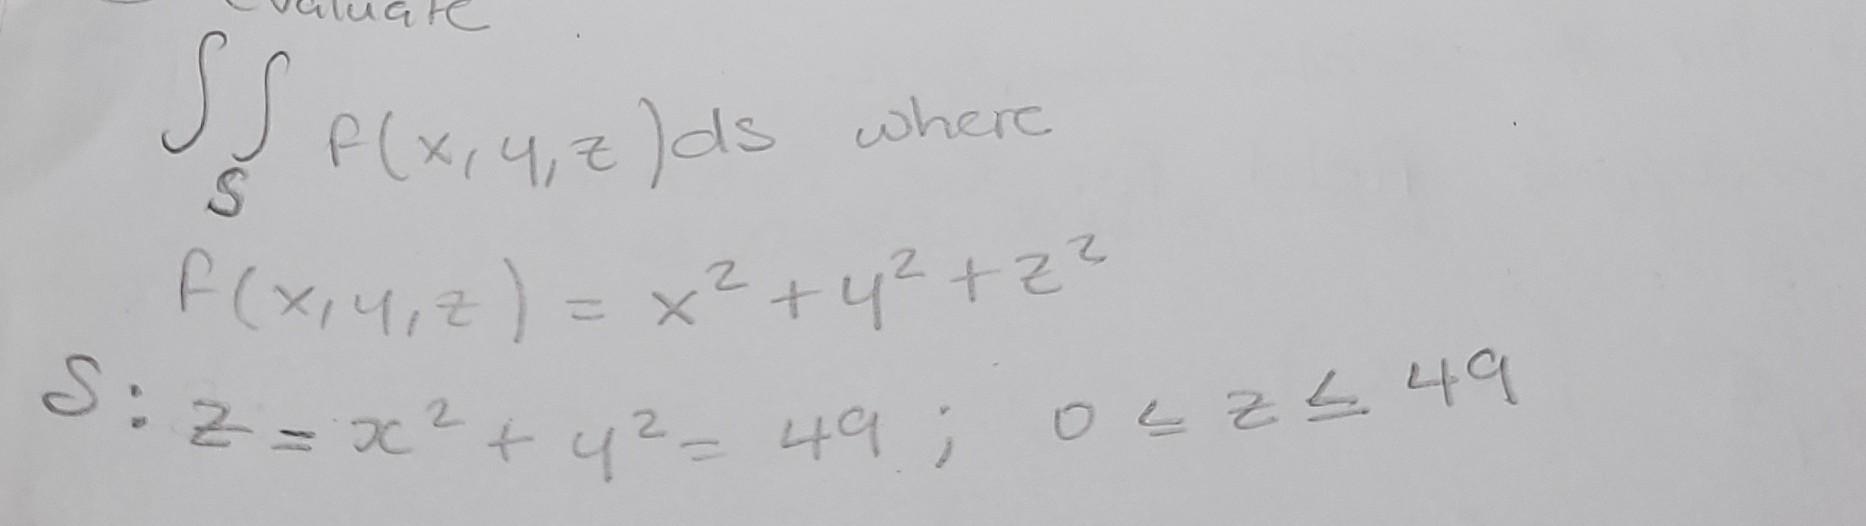 Evaluate
∫∫ f(x,y,z)ds where
S
f(x,y,z) = x² + y² + z²
S: z = x² + y² = 49 ; 0 ≤ z ≤ 49